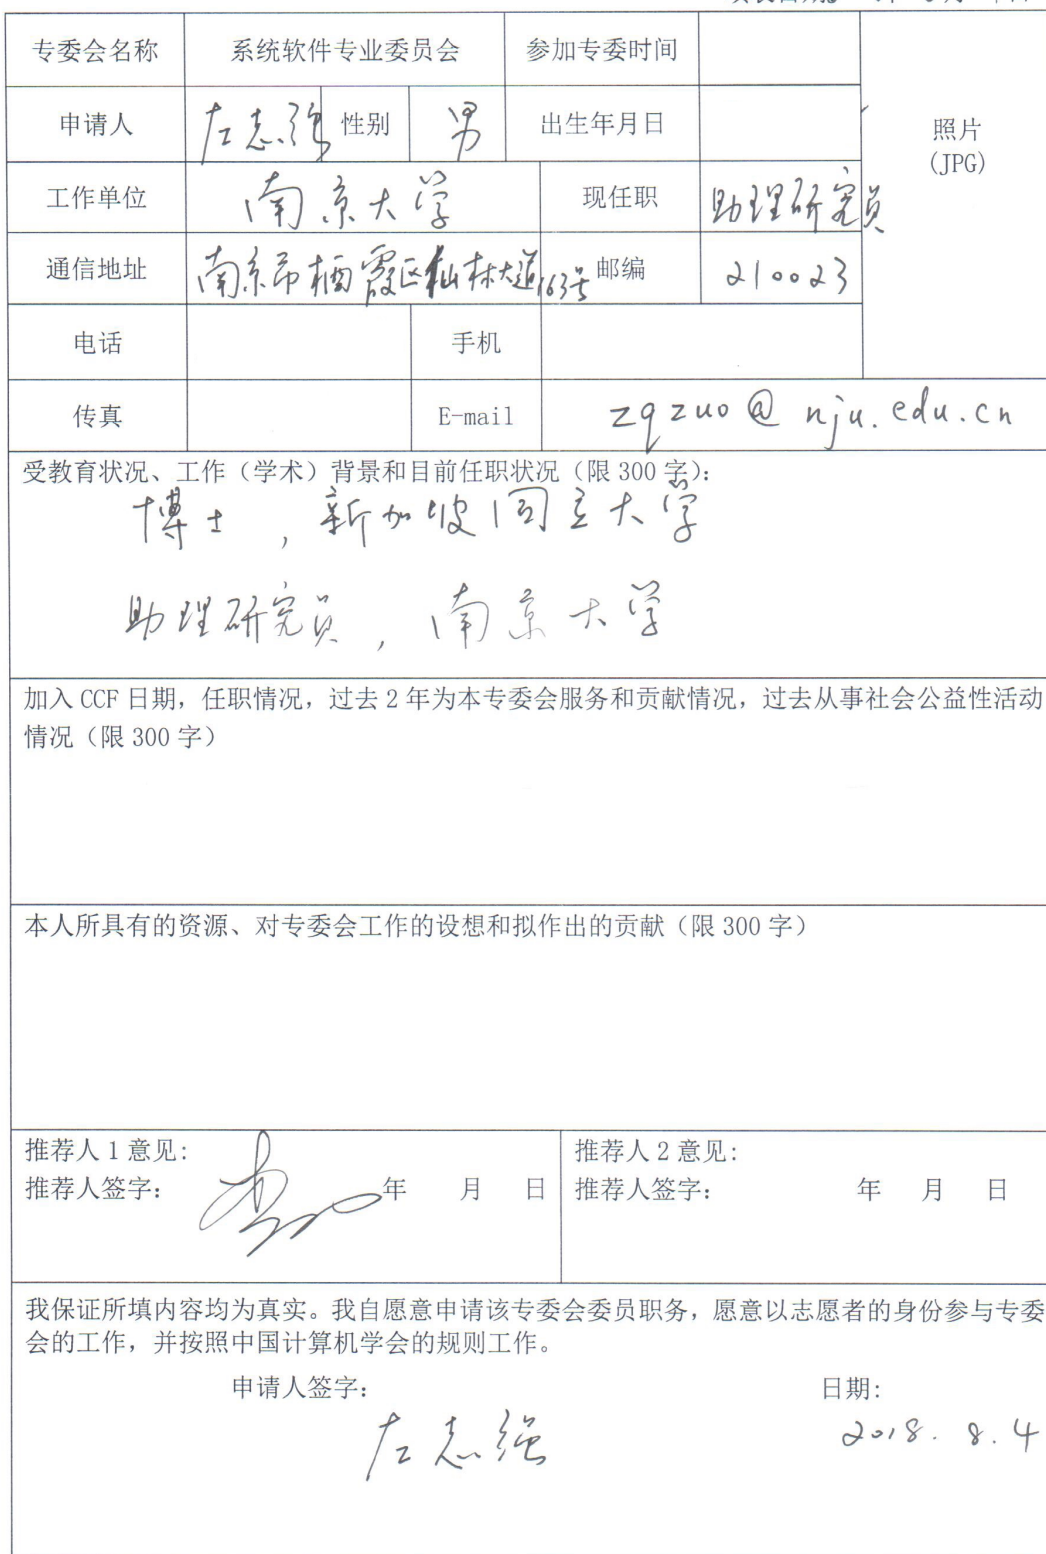 专委会名称 系统软件专业委员会 参加专委时间
申请人 左志强 性别 男 出生年月日 照片
(JPG)
工作单位 南京大学 现任职 助理研究员
通信地址 南京市栖霞区仙林大道163号 邮编 210023
电话 手机
传真 E-mail zqzuo@nju.edu.cn
受教育状况、工作（学术）背景和目前任职状况（限300字）：
博士，新加坡国立大学
助理研究员，南京大学
加入CCF日期，任职情况，过去2年为本专委会服务和贡献情况，过去从事社会公益性活动
情况（限300字）
本人所具有的资源、对专委会工作的设想和拟作出的贡献（限300字）
推荐人1意见： 推荐人2意见：
推荐人签字： 年 月 日 推荐人签字： 年 月 日
我保证所填内容均为真实。我自愿意申请该专委会委员职务，愿意以志愿者的身份参与专委
会的工作，并按照中国计算机学会的规则工作。
申请人签字： 日期：
左志强 2018.8.4